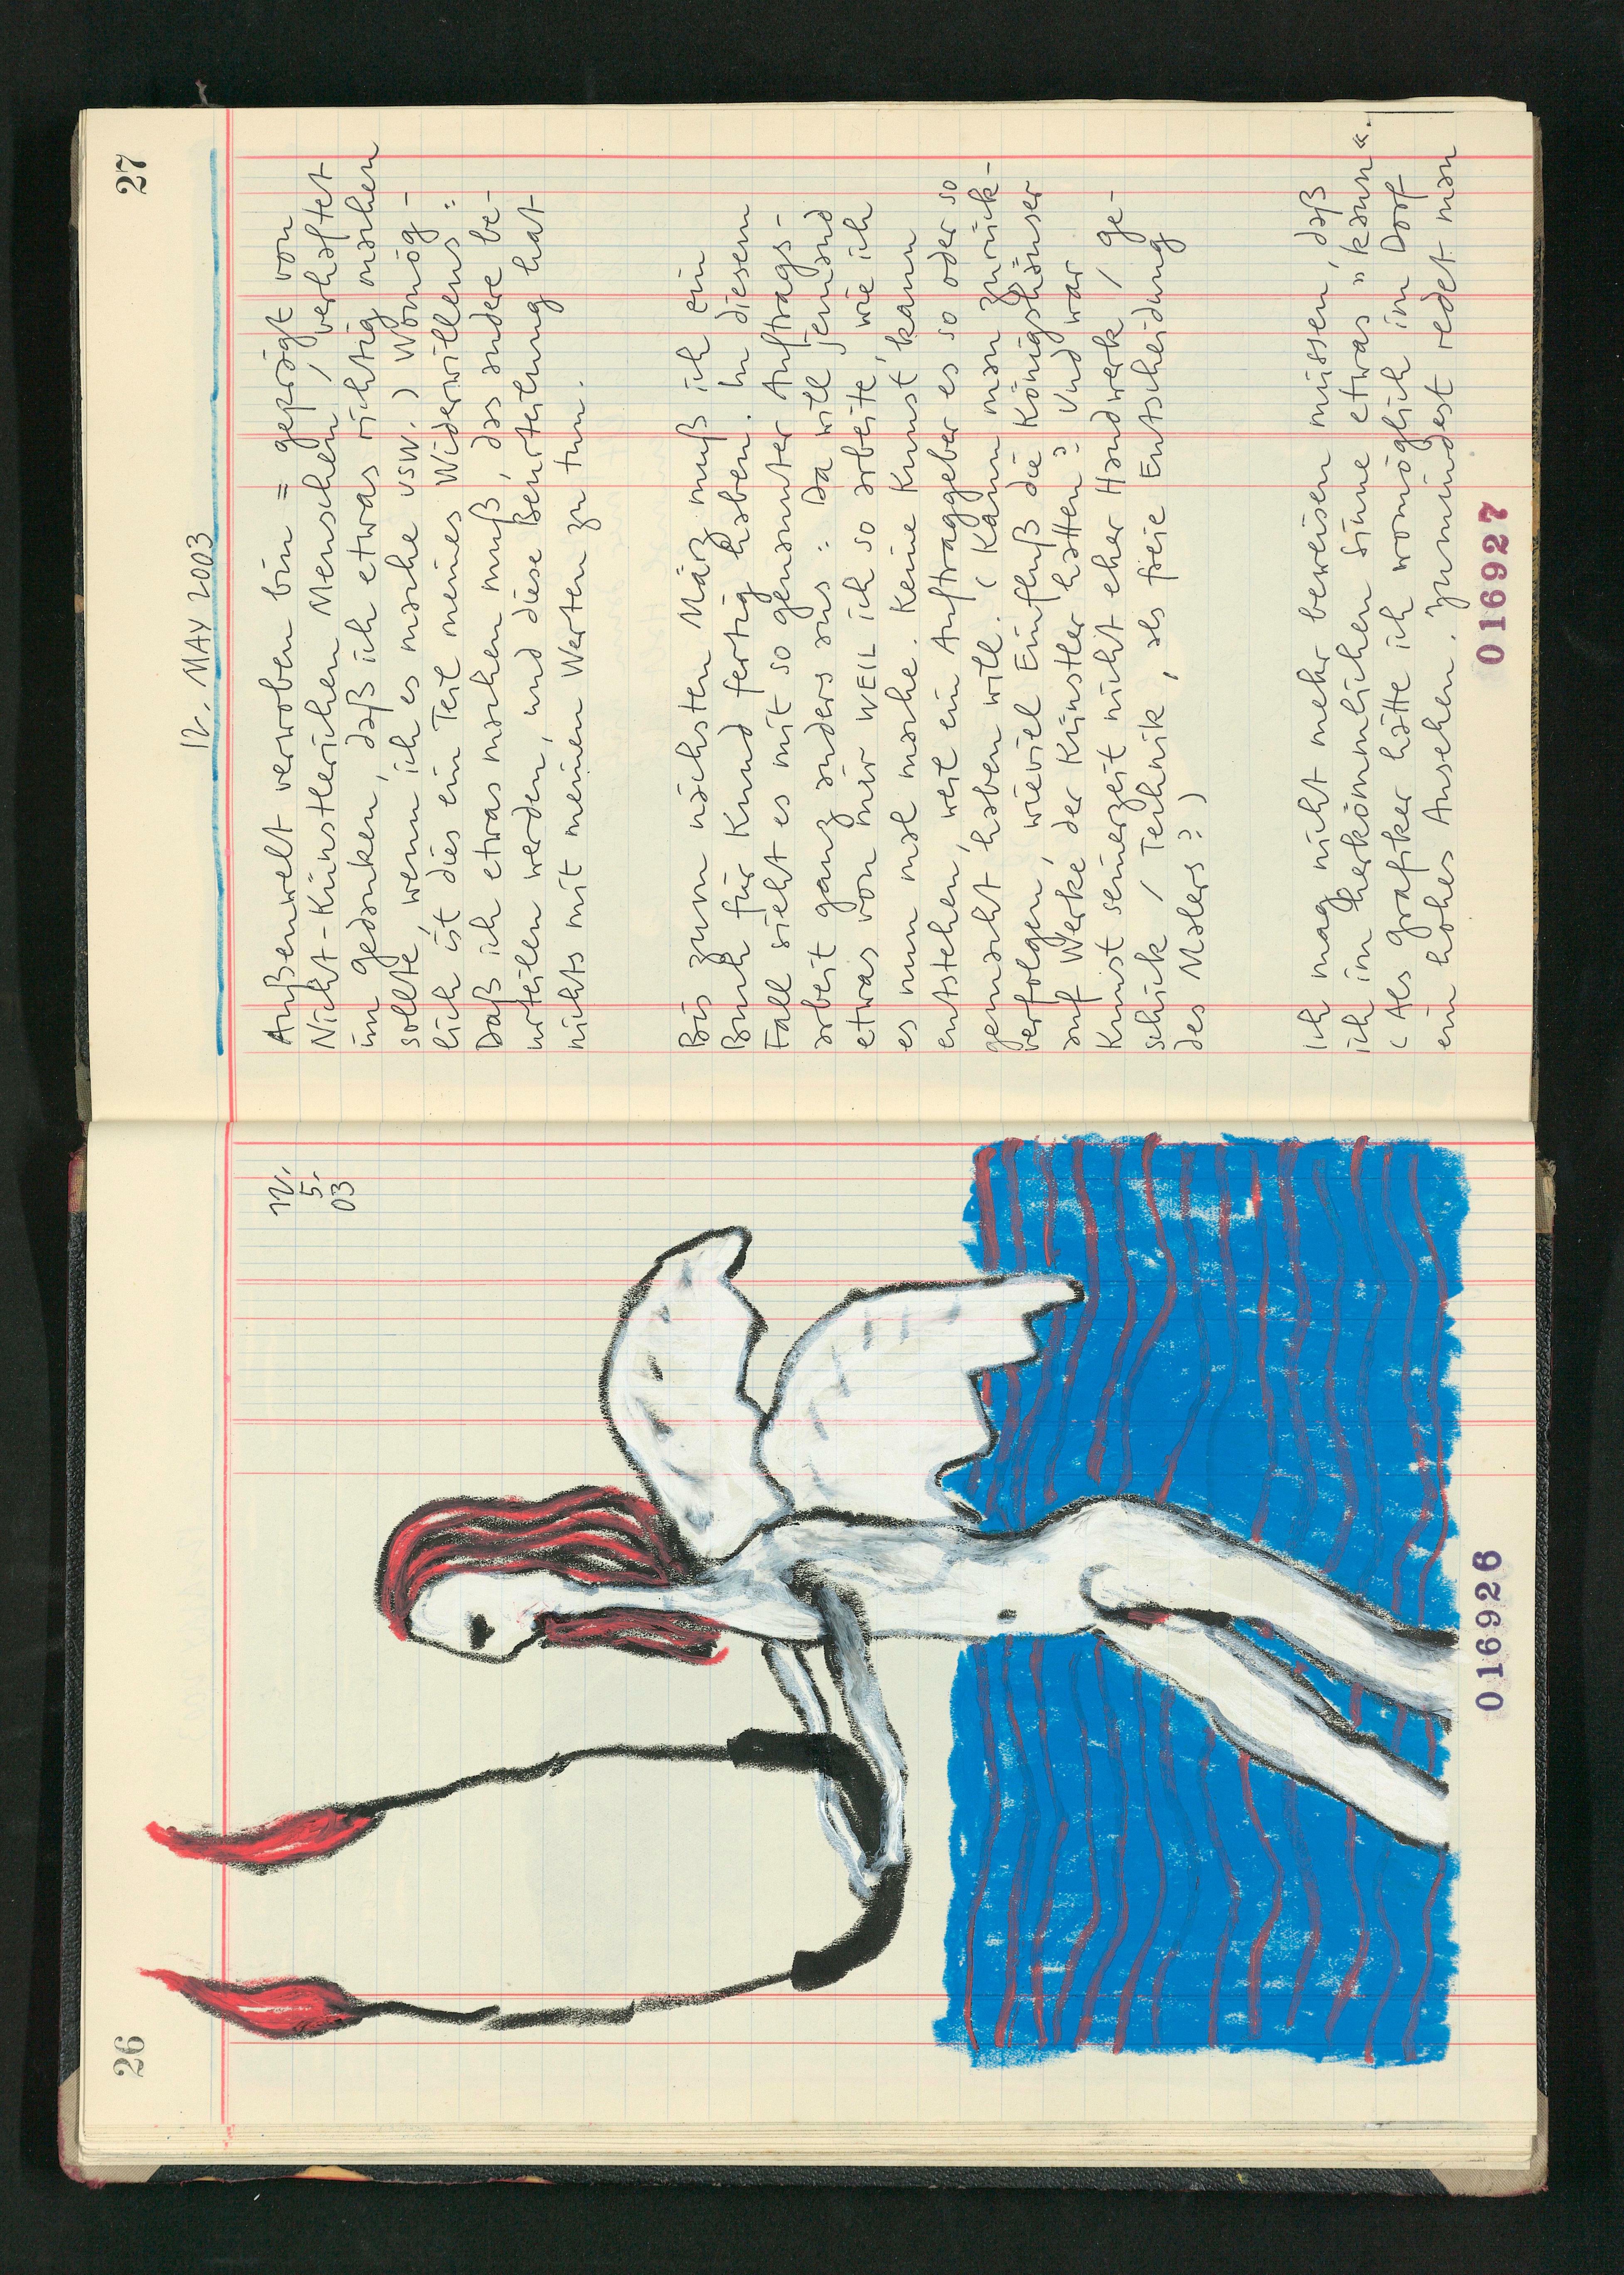 26
12.
5.
03
016926
27
12. MAY 2003
Außenwelt verwoben bin = geprägt von
Nicht-Künstlerischen Menschen / verhaftet
im gedanken, daß ich etwas richtig machen
sollte, wenn ich es mache usw.) Womög-
lich ist dies ein Teil meines Widerwillens:
Daß ich etwas machen muß, das andere be-
urteilen werden, und diese Beurteilung hat
nichts mit meinen Werten zu tun.
Bis zum nächsten März muß ich ein
Buch für Kund fertig haben. In diesem
Fall sieht es mit so genannter Auftrags-
arbeit ganz anders aus: Da will jemand
etwas von mir WEIL ich so arbeite, wie ich
es nun mal mache. Keine Kunst kann
entstehen, weil ein Auftraggeber es so oder so
gemacht haben will. (Kann man zurück-
verfolgen, wieviel Einfluß die Königshäuser
auf Werke der Künstler hatten? Und war
Kunst seinerzeit nicht eher Handwerk / ge-
schick / Technik, als freie Entscheidung
des Malers?)
Ich mag nicht mehr beweisen müssen, daß
ich im herkömmlichen Sinne etwas »kann«.
(Als grafiker hätte ich womöglich im Dorf
ein hohes Ansehen. Zumindest redet man
016927